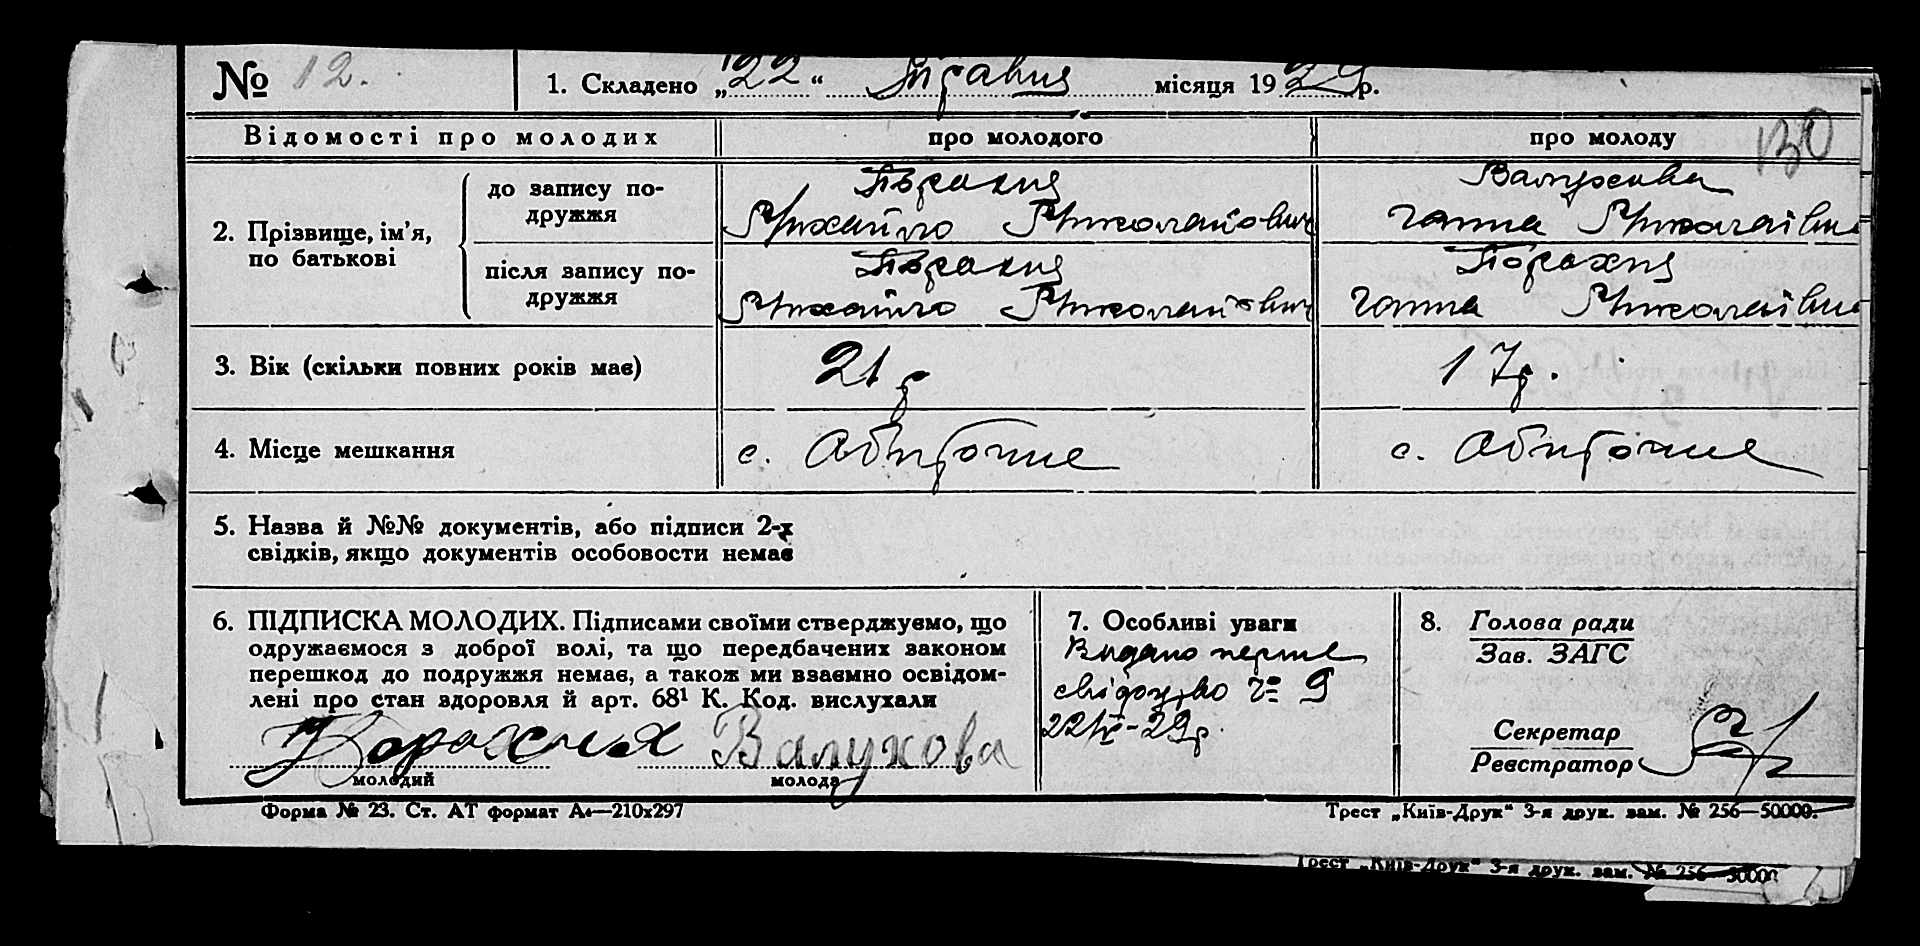 № 12. 1. Складено „22“ Травня місяця 1929 р.
Відомості про молодих про молодого про молоду 130
2. Прізвище, ім'я, по батькові
до запису по-
дружжя
Порахня Валухова
Михайло Николайович Ганна Николаівна
після запису по-
дружжя
Порахня Порахня
Михайло Николайович Ганна Николаівна
3. Вік (скільки повних років має) 21 р 17 р.
4. Місце мешкання с. Обиточне с. Обиточне
5. Назва й №№ документів, або підписи 2-х
свідків, якщо документів особовости немає
6. ПІДПИСКА МОЛОДИХ. Підписами своїми стверджуємо, що
одружаємося з доброї волі, та що передбачених законом
перешкод до подружжя немає, а також ми взаємно освідом-
лені про стан здоровля й арт. 68¹ К. Код. вислухали
Порахня Валухова
молодий молода
7. Особливі уваги
Видано перше
свідоцтво № 9
22/V-29р.
8. Голова ради
Зав. ЗАГС
Секретар
Реєстратор
Форма № 23. Ст. АТ формат А₄—210х297 Трест „Київ-Друк“ 3-я друк. зам. № 256—50000.
Трест „Київ-Друк“ 3-я друк. зам. № 256—50000